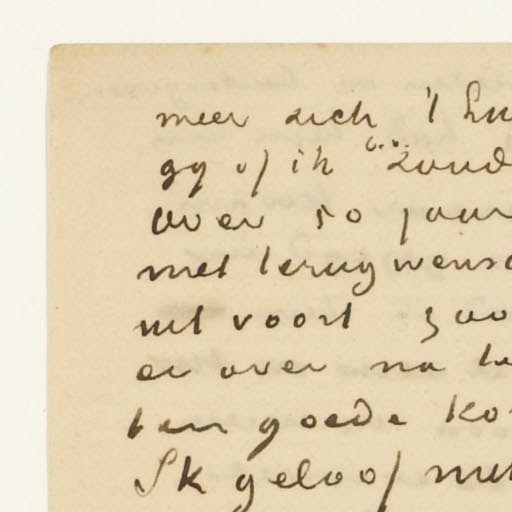 meer zich 't hu
gy of ik zoud
over 50 jaar
met terugwens
uit voort zoo
er over na te
ten goede ko
Ik geloof met